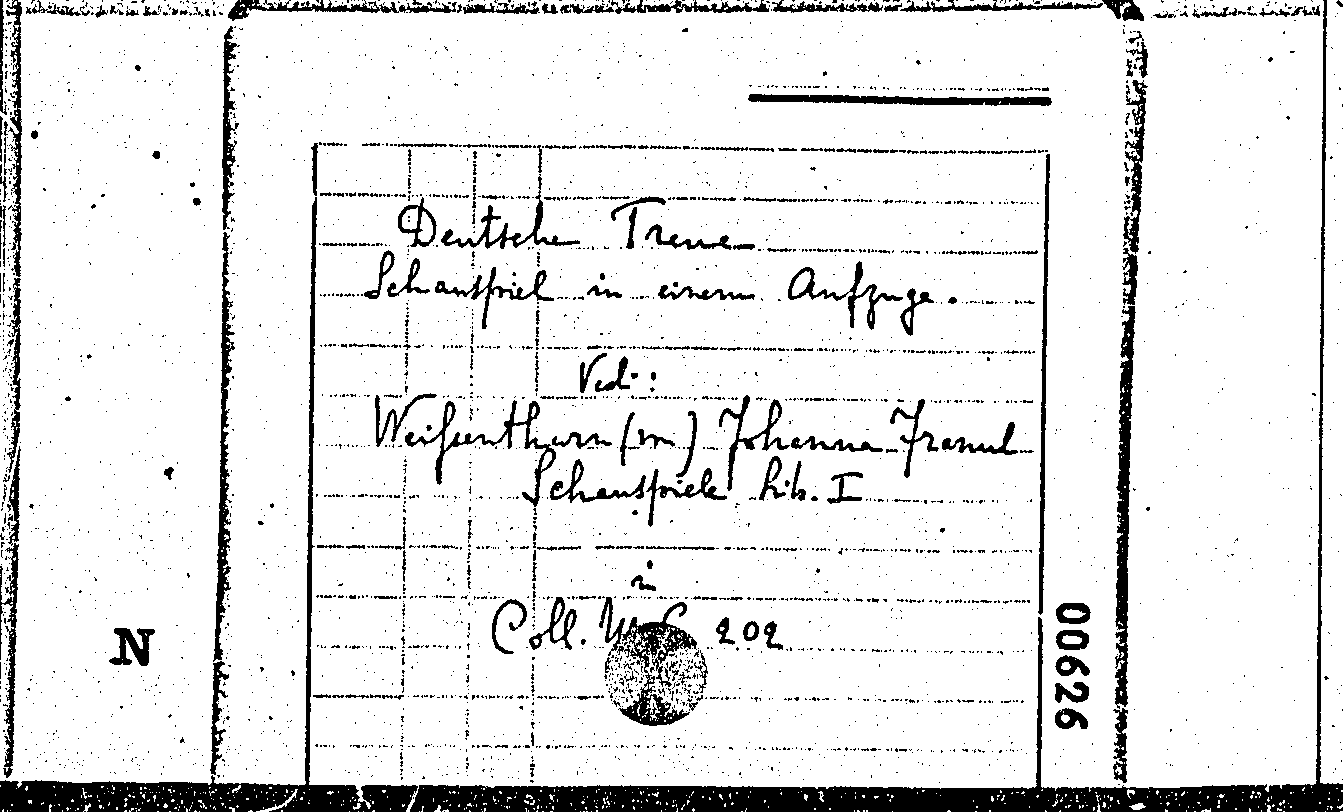 Deutsche Treue
Schauspiel in einem Aufzuge.
Ved:
Weißenthurn (m) Johanna Franul
Schauspiele
in
Coll. 202
N
00626